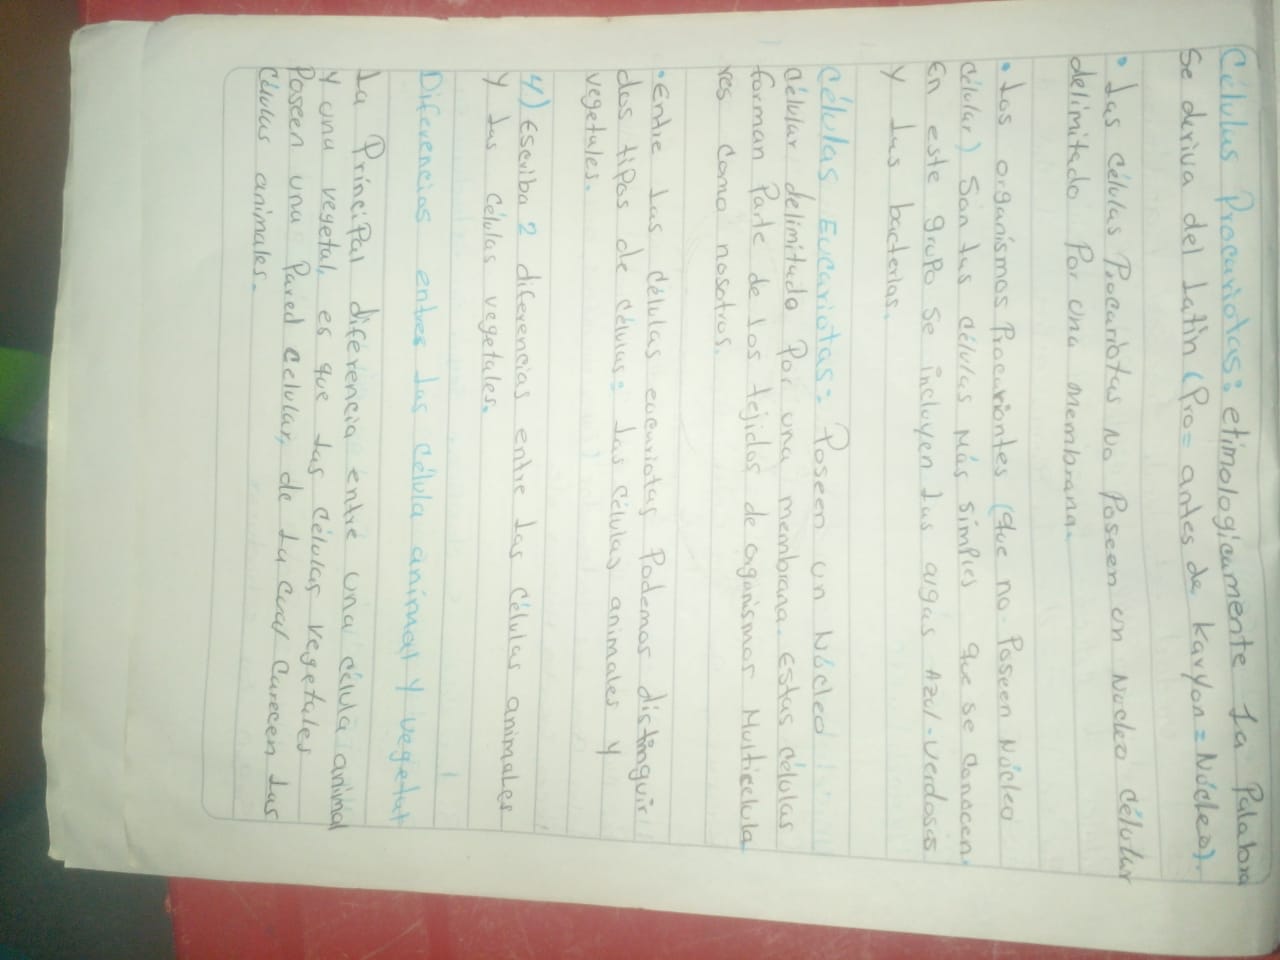 Células Procariotas: etimologicamente La Palabra
Se deriva del Latín (Pro = antes de karyon = Núcleo).
• Las células Procariotas No Poseen un Nucleo célular
delimitado Por una membrana.
• Los organismos Procariontes (que no Poseen Núcleo
célular) Son las células Más simples que se conocen.
En este grupo se incluyen Las algas Azul-Verdosas
y Las bacterias.
Células Eucariotas: Poseen un Núcleo
célular delimitado Por una membrana. estas células
forman Parte de los tejidos de organismos Multicelula
res como nosotros.
• Entre Las células eucariotas Podemos distinguir
dos tipos de células: Las células animales y
vegetales.
4) Escriba 2 diferencias entre Las células animales
y Las células vegetales.
Diferencias entres Las célula animal y vegetal
La Príncipal diferencia entre una célula animal
y una vegetal, es que Las células vegetales
Poseen una Pared celular, de La cual carecen Las
células animales.